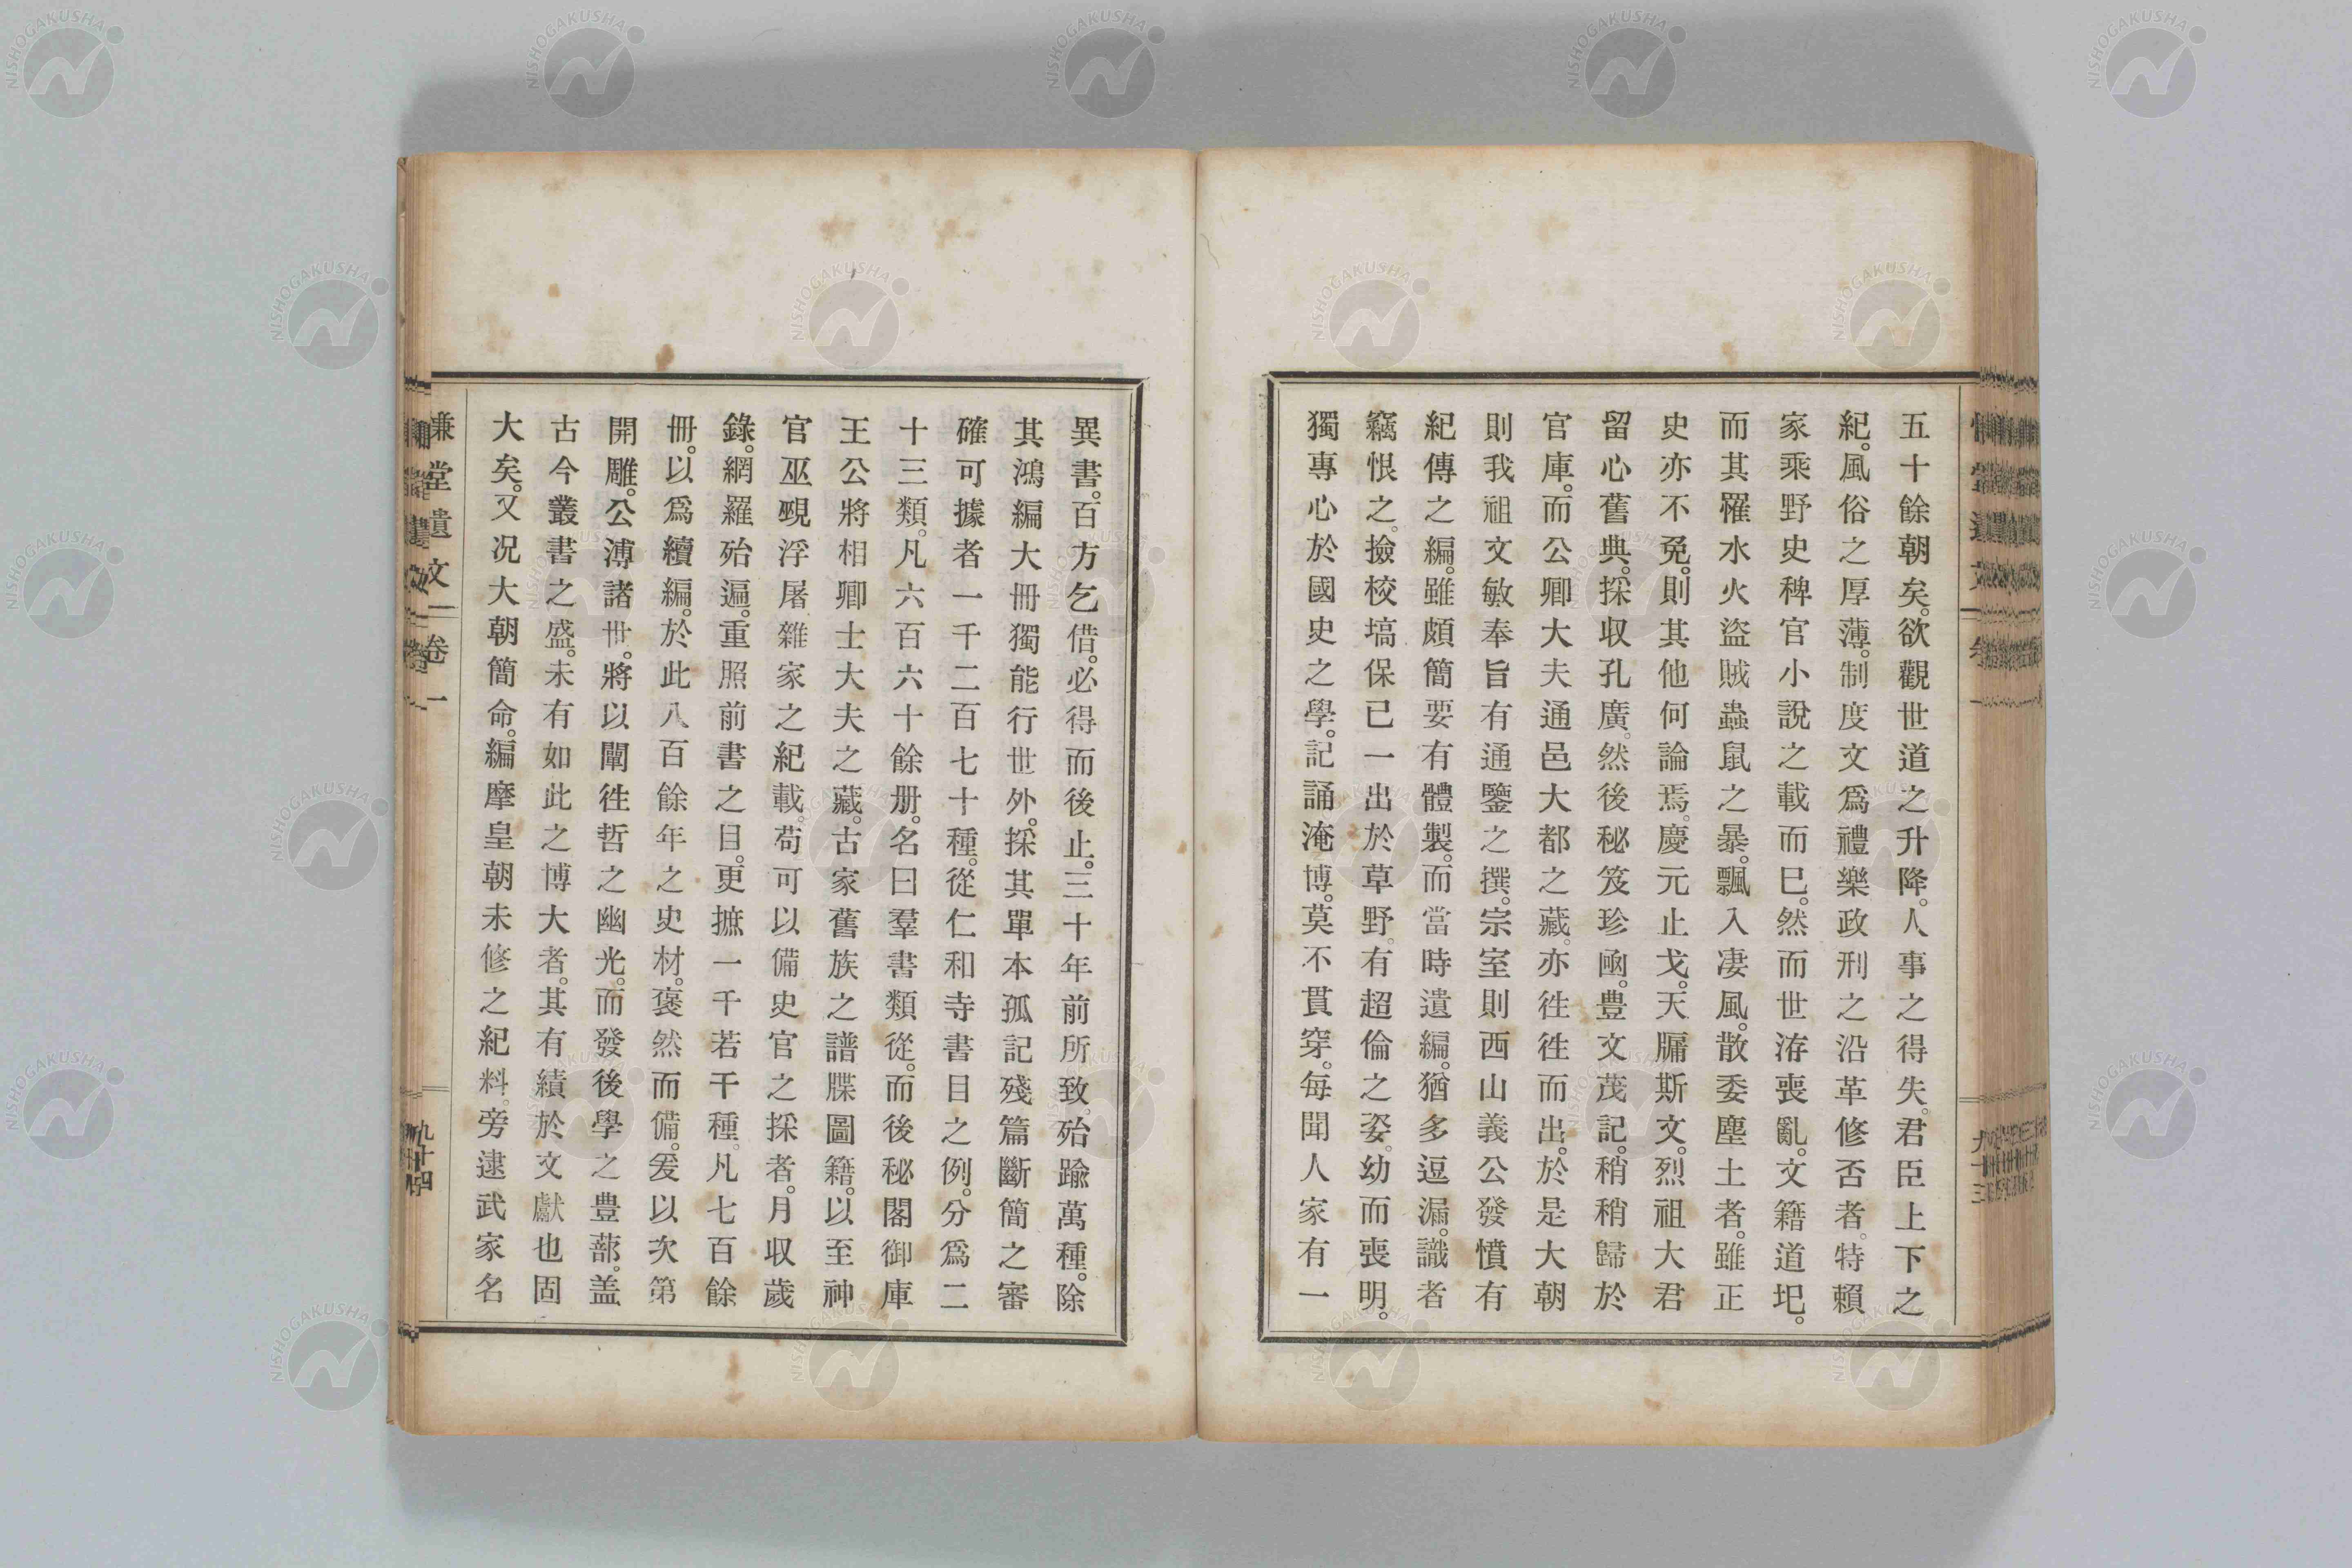 五十餘朝矣。欲觀世道之升降。人事之得失。君臣上下之
紀。風俗之厚薄。制度文爲禮樂政刑之沿革修否者。特賴
家乘野史稗官小說之載而已。然而世洊喪亂。文籍道圮。
而其罹水火盜賊蟲鼠之暴。飄入凄風。散委塵土者。雖正
史亦不免。則其他何論焉。慶元止戈。天牖斯文。烈祖大君
留心舊典。採収孔廣。然後秘笈珍凾。豊文茂記。稍稍歸於
官庫。而公卿大夫通邑大都之藏。亦徃徃而出。於是大朝
則我祖文敏奉旨有通鑒之撰。宗室則西山義公發憤有
紀傳之編。雖頗簡要有體製。而當時遺編。猶多逗漏。識者
竊恨之。撿校塙保己一出於草野。有超倫之姿。幼而喪明。
獨專心於國史之學。記誦淹博。莫不貫穿。每聞人家有一
異書。百方乞借。必得而後止。三十年前所致殆踰萬種。除
其鴻編大冊獨能行世外。採其單本孤記殘篇斷簡之審
確可據者一千二百七十種。從仁和寺書目之例。分爲二
十三類。凡六百六十餘册。名曰羣書類從。而後秘閣御庫
王公將相卿士大夫之藏。古家舊族之譜牒圖籍。以至神
官巫覡浮屠雜家之紀載。苟可以備史官之採者。月収歲
錄。網羅殆遍。重照前書之目。更摭一千若干種。凡七百餘
冊。以爲續編。於此八百餘年之史材。褎然而備。爰以次第
開雕。公溥諸世。將以闡徃哲之幽光。而發後學之豊蔀。盖
古今叢書之盛。未有如此之博大者。其有績於文獻也固
大矣。又况大朝簡命。編摩皇朝未修之紀料。旁逮武家名
慊堂遺文 卷一
九十四
NISHOGAKUSHA